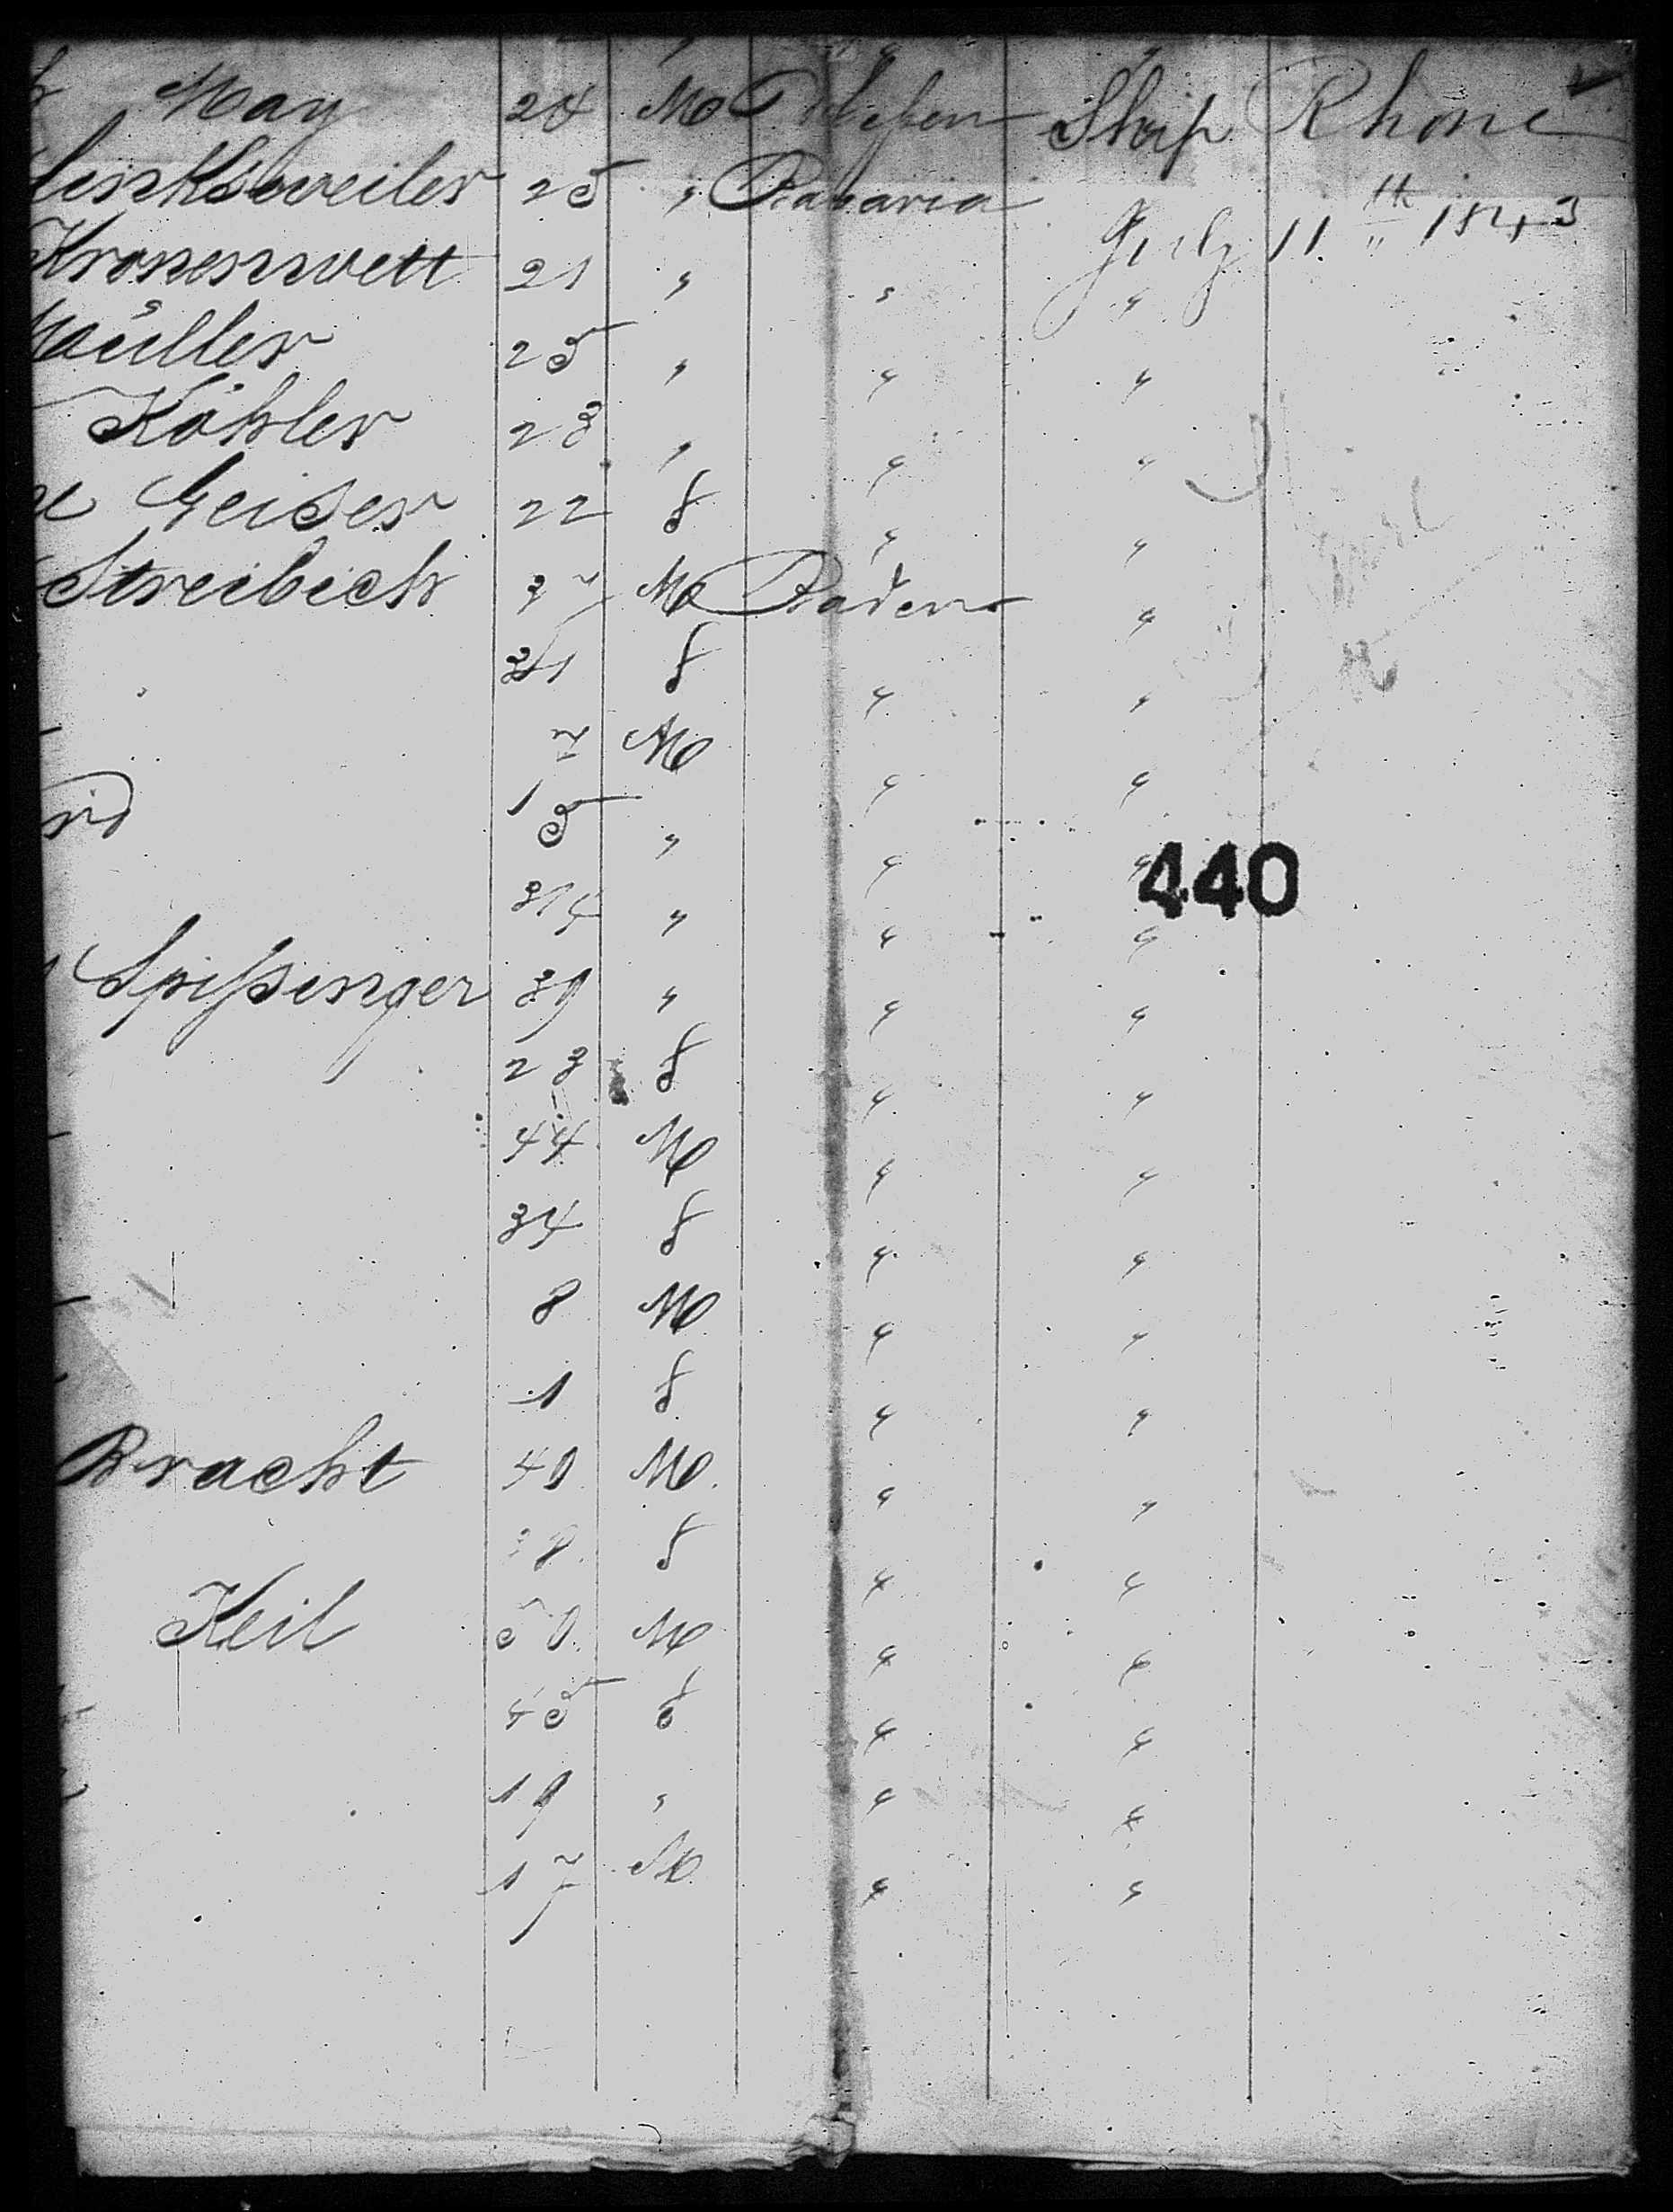 May 24 M Ship Rhone
25 " Bavaria July 11th 1843
Kronenwett 21 " " "
Müller 25 " " "
Köhler 23 " " "
Geiser 22 f " "
Streibich 37 M Baden "
31 f " "
7 M " "
5 " " "
3/4 " " "
Spißinger 39 " " "
23 f " "
44 M " "
34 f " "
8 M " "
1 f " "
Bracht 40 M " "
f " "
Keil 50 M " "
45 f " "
19 " " "
17 M " "
440